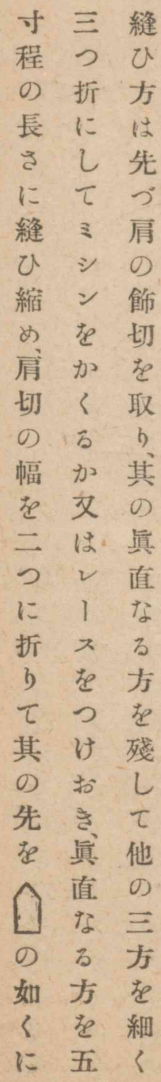 縫ひ方は先づ肩の飾切を取り、其の眞直なる方を殘して他の三方を細く
三つ折にしてミシンをかくるか又はレースをつけおき、眞直なる方を五
寸程の長さに縫ひ縮め、肩切の幅を二つに折りて其の先を の如くに